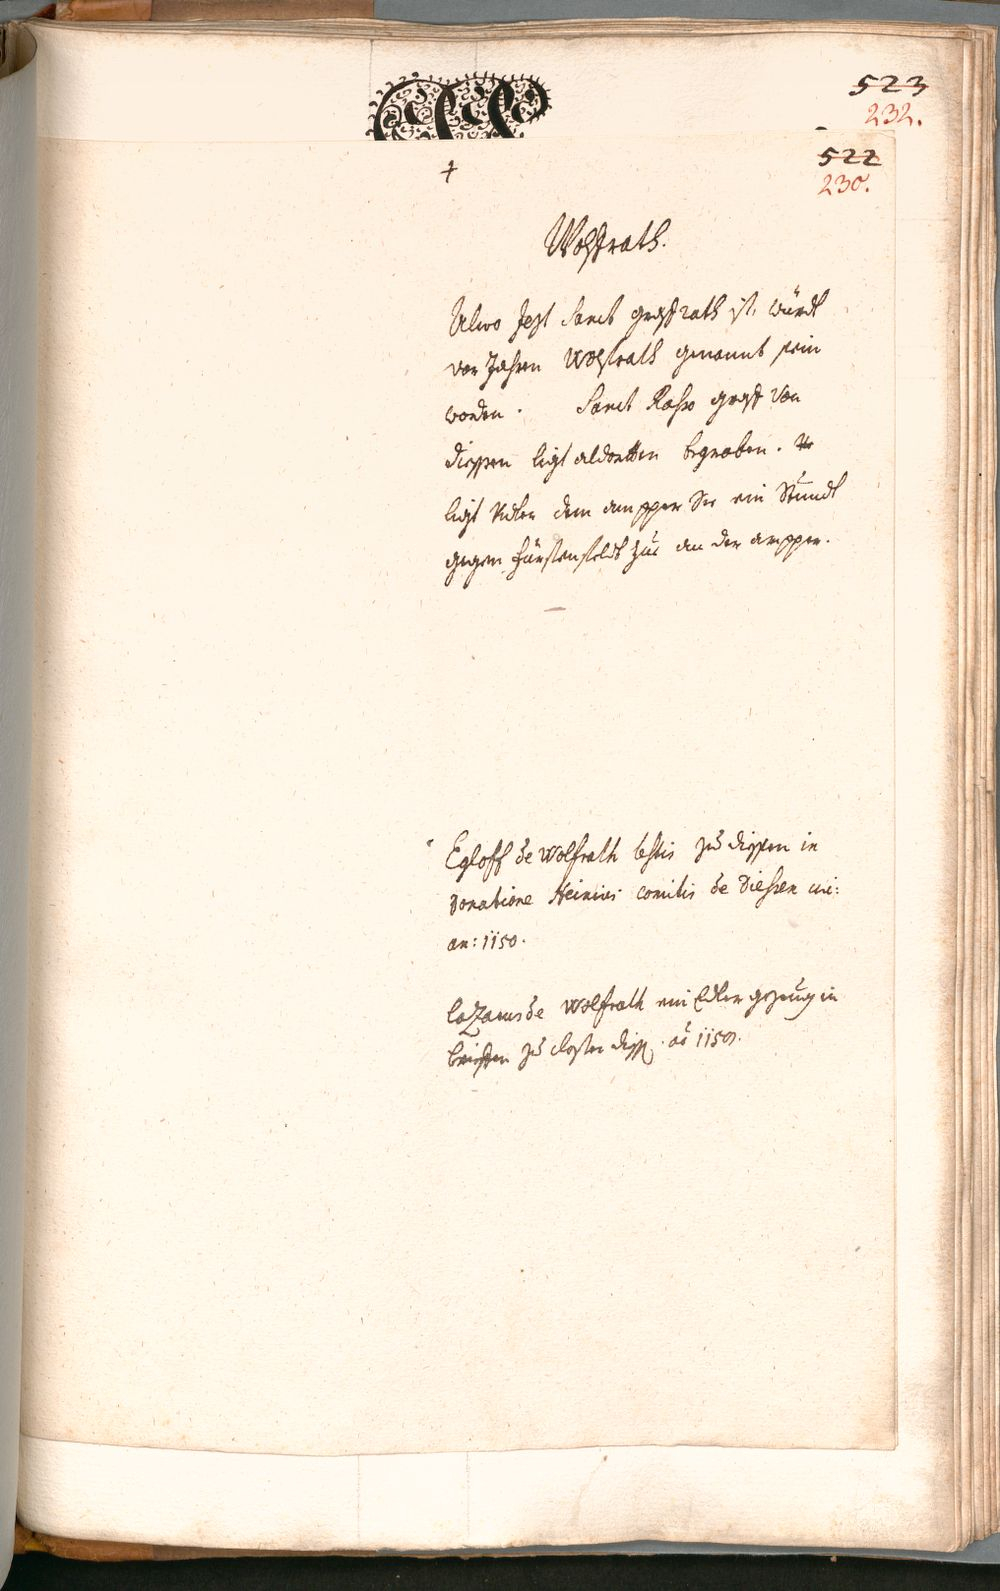 523
232.
522
230.
Wolfrath.
Alwo Jezt Sanct graffrath ist, würdt
vor Jahren Wolfrath genannt sein
worden. Sanct Rasso graff von
diessen ligt aldorten begraben.
ligt Vnder dem ampper See ein Stundt
gegen fürstenfeldt zue an der ampper.
Egloff de Wolfrath testis zu diessen in
donatione Heinrici comitis de Diessen
an: 1150.
de Wolfrath ein Edler gezeug in
brieffen zu closter diess. aō 1150.